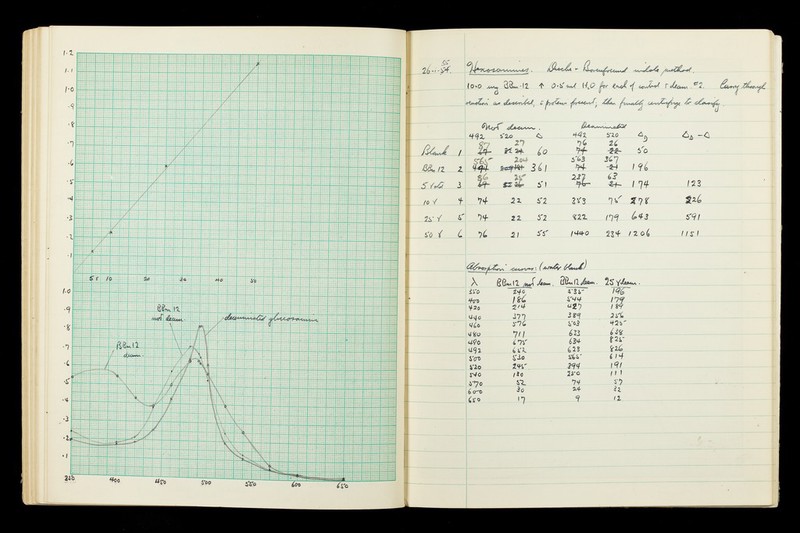 1.2
1.1
1.0
.9
.8
.7
.6
.5
.4
.3
.2
.1
5 γ 10 20 30 40 50
1.0
.9
.8
.7
.6
.5
.4
.3
.2
.1
BBm 12
not deam.
deaminated glucosamine
BBm 12
deam.
350 400 450 500 550 600 650
Hexosamines. Dische - Borenfreund indole method.
10.0 mg BBm-12 ↑ 0.5 ml H2O for each of control + deam. #2. Carry through
reaction as described, protein present, then finally centrifuge to classify.
Not deam. Deaminated
492 520 Δ 492 520 Δ3 Δ3 - Δ
Blank 1 87 27 60 76 26 50
BBm 12 2 565 204 361 563 367 196
5 γ 3 51 237 63 174 123
10 γ 4 74 22 52 353 75 278 226
25 γ 5 74 22 52 822 179 643 591
50 γ 6 76 21 55 1440 234 1206 1151
Absorption curves: (water blank)
λ BBm 12 not deam. BBm 12 deam. 25 γ deam.
350 240 535 196
400 186 544 179
420 214 427 189
440 377 389 256
460 576 503 425
480 711 623 638
490 675 634 825
492 652 623 826
500 530 565 614
520 245 394 191
540 180 250 111
570 52 74 57
600 30 24 32
650 17 9 12